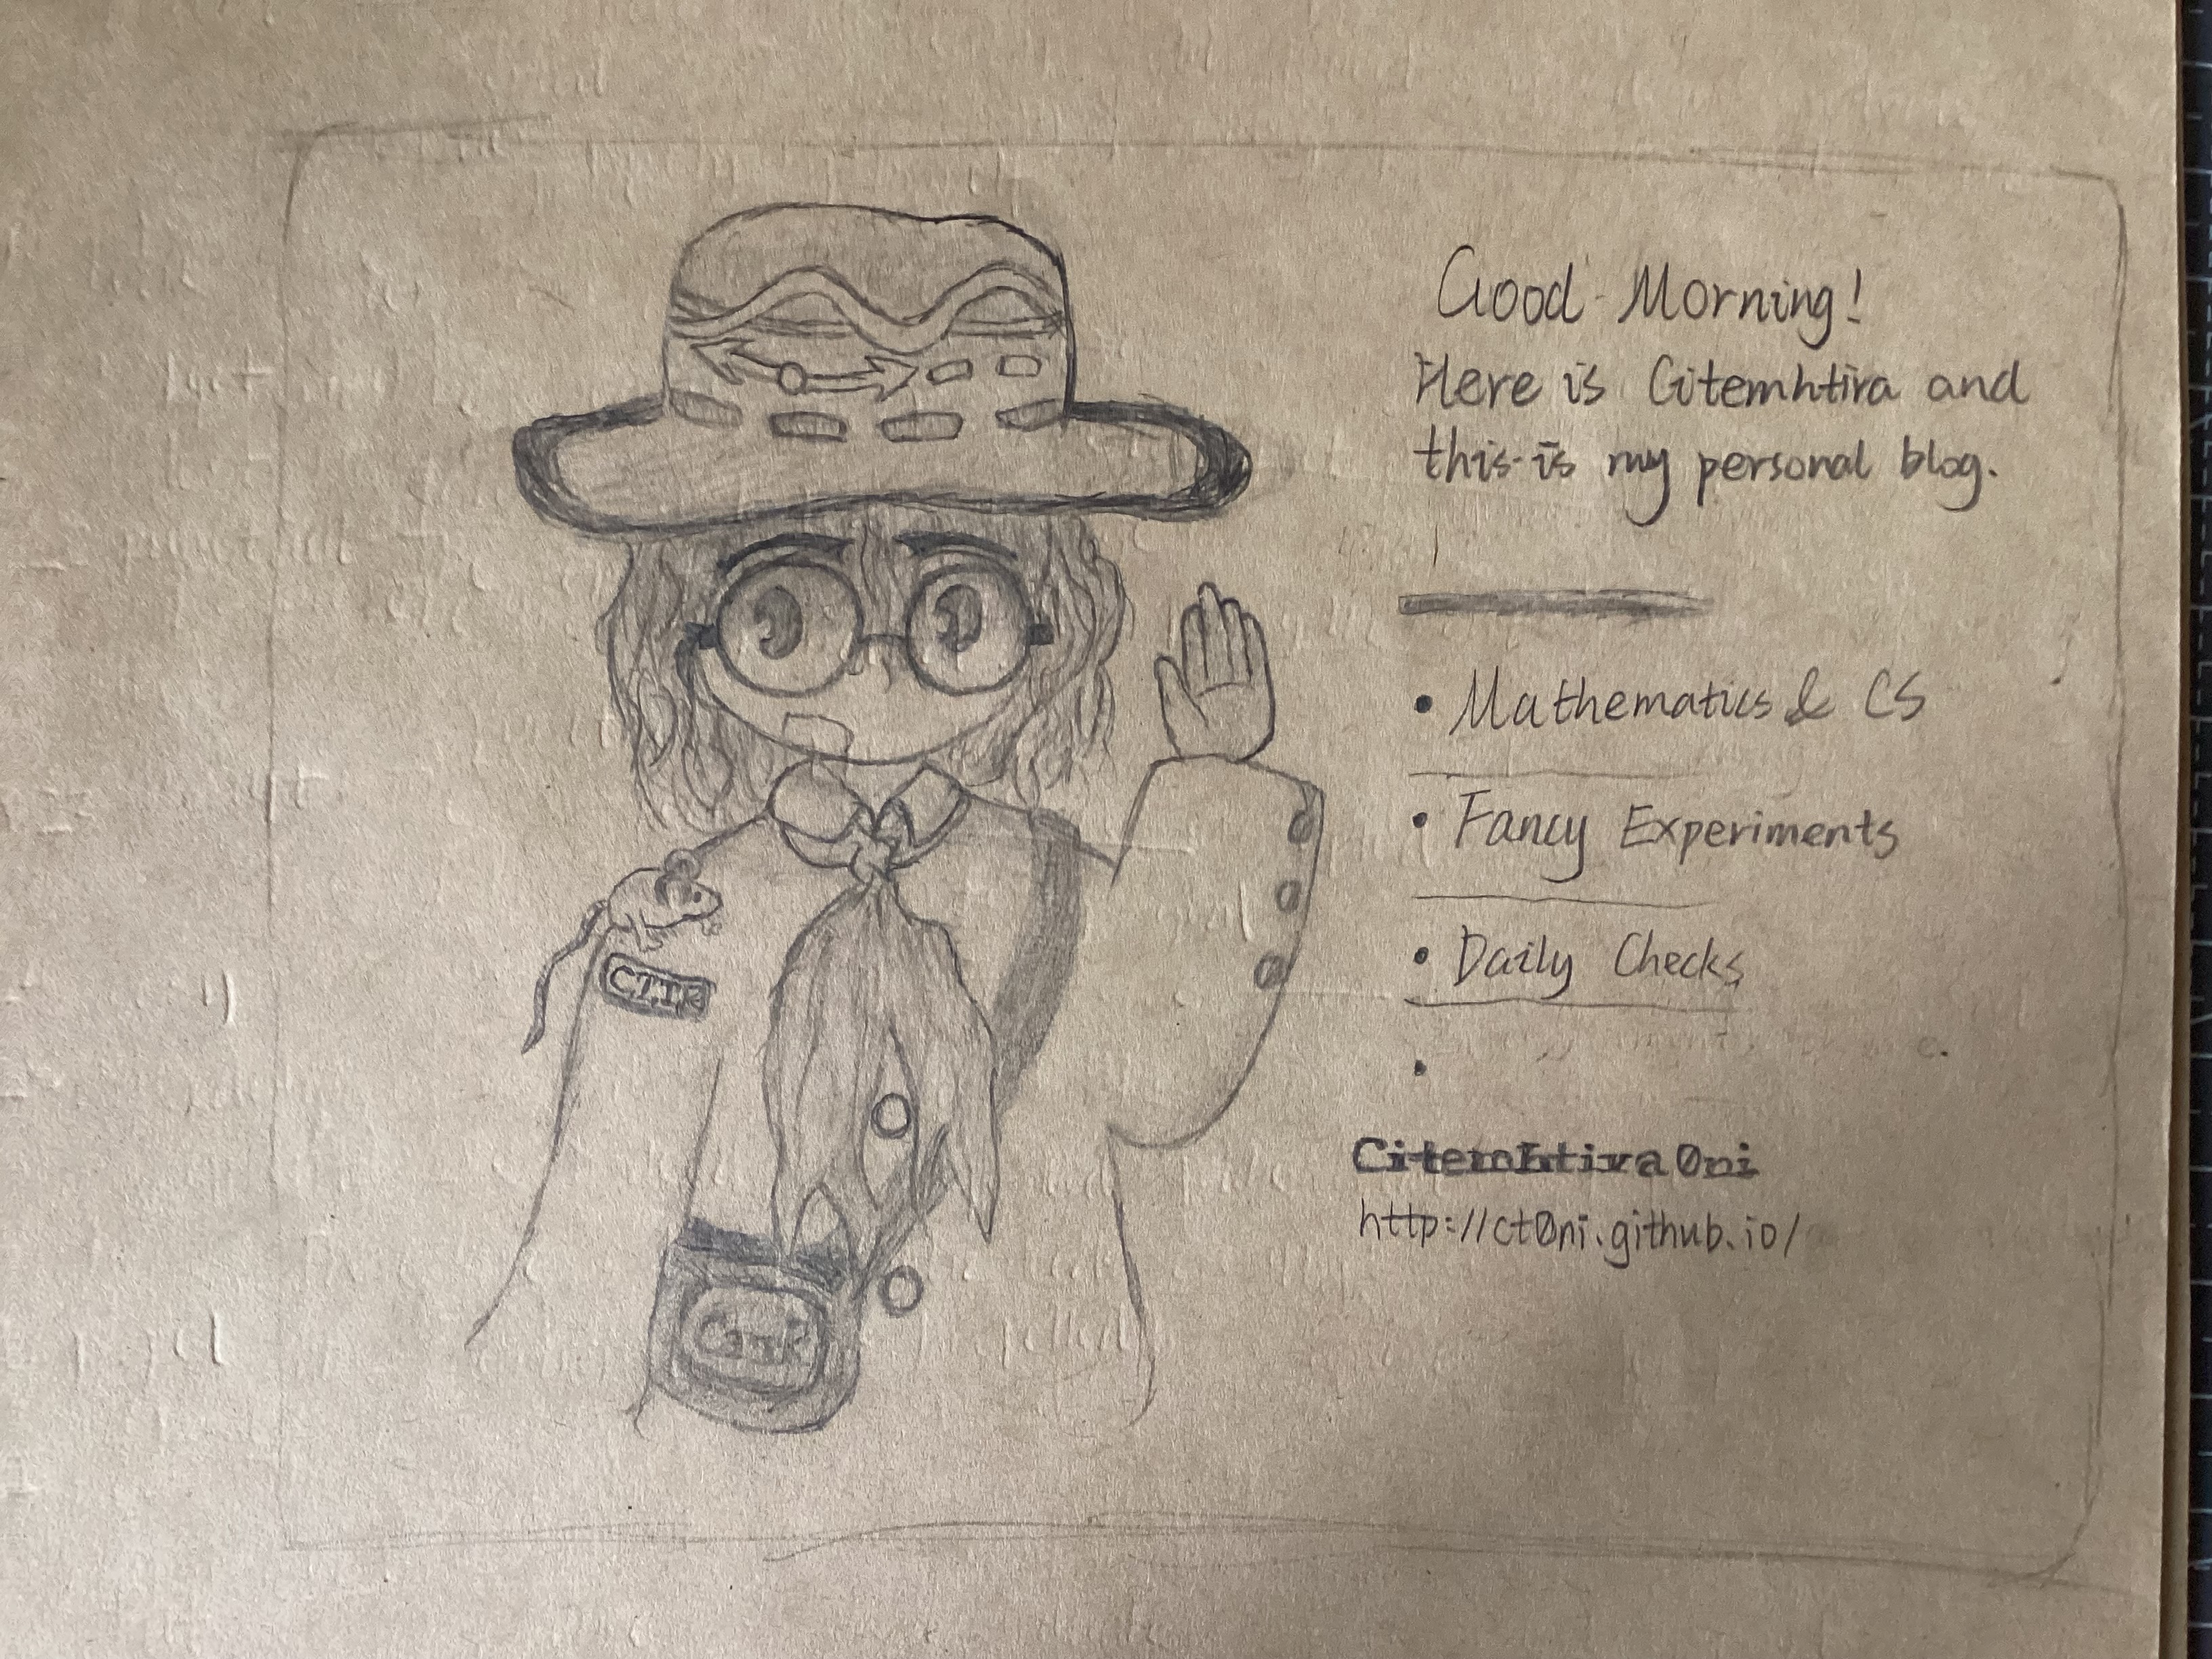 Good Morning!
Here is Citemhtira and
this is my personal blog.
• Mathematics & CS
• Fancy Experiments
• Daily Checks
•
Citemhtira0ni
http://ct0ni.github.io/